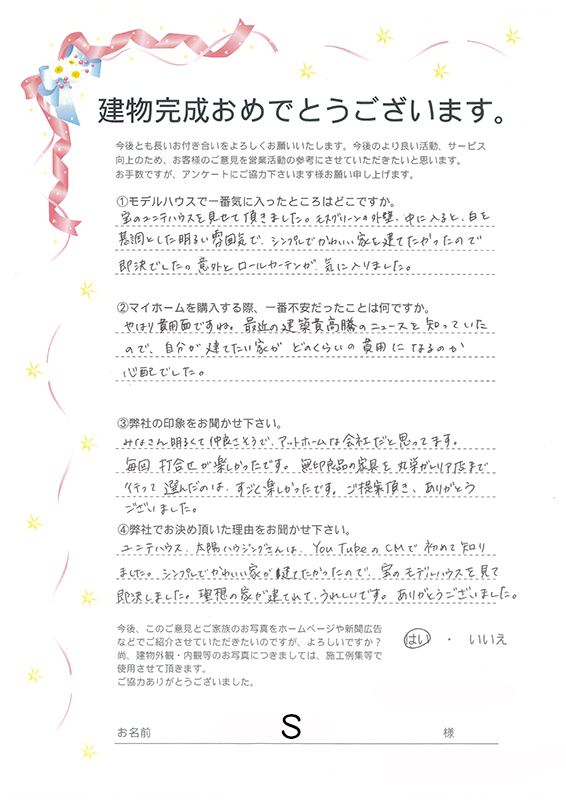 建物完成おめでとうございます。
今後とも長いお付き合いをよろしくお願いいたします。今後のより良い活動、サービス
向上のため、お客様のご意見を営業活動の参考にさせていただきたいと思います。
お手数ですが、アンケートにご協力下さいます様お願い申し上げます。
①モデルハウスで一番気に入ったところはどこですか。
宝のユニテハウスを見せて頂きました。モスグリーンの外壁、中に入ると、白を
基調とした明るい雰囲気で、シンプルでかわいい家を建てたかったので
即決でした。意外とロールカーテンが、気に入りました。
②マイホームを購入する際、一番不安だったことは何ですか。
やはり費用面ですね。最近の建築費高騰のニュースを知っていた
ので、自分が建てたい家がどのくらいの費用になるのか
心配でした。
③弊社の印象をお聞かせ下さい。
みなさん明るくて仲良さそうで、アットホームな会社だと思ってます。
毎回打合せが楽しかったです。無印良品の家具を丸栄ガレリア店まで
行って選んだのは、すごく楽しかったです。ご提案頂き、ありがとう
ございました。
④弊社でお決め頂いた理由をお聞かせ下さい。
ユニテハウス、太陽ハウジングさんは、YouTubeのCMで初めて知り
ました。シンプルでかわいい家が建てたかったので、宝のモデルハウスを見て
即決しました。理想の家が建てれて、うれしいです。ありがとうございました。
今後、このご意見とご家族のお写真をホームページや新聞広告
などでご紹介させていただきたいのですが、よろしいですか？
尚、建物外観・内観等のお写真につきましては、施工例集等で
使用させて頂きます。
ご協力ありがとうございました。
はい ・ いいえ
お名前 S 様